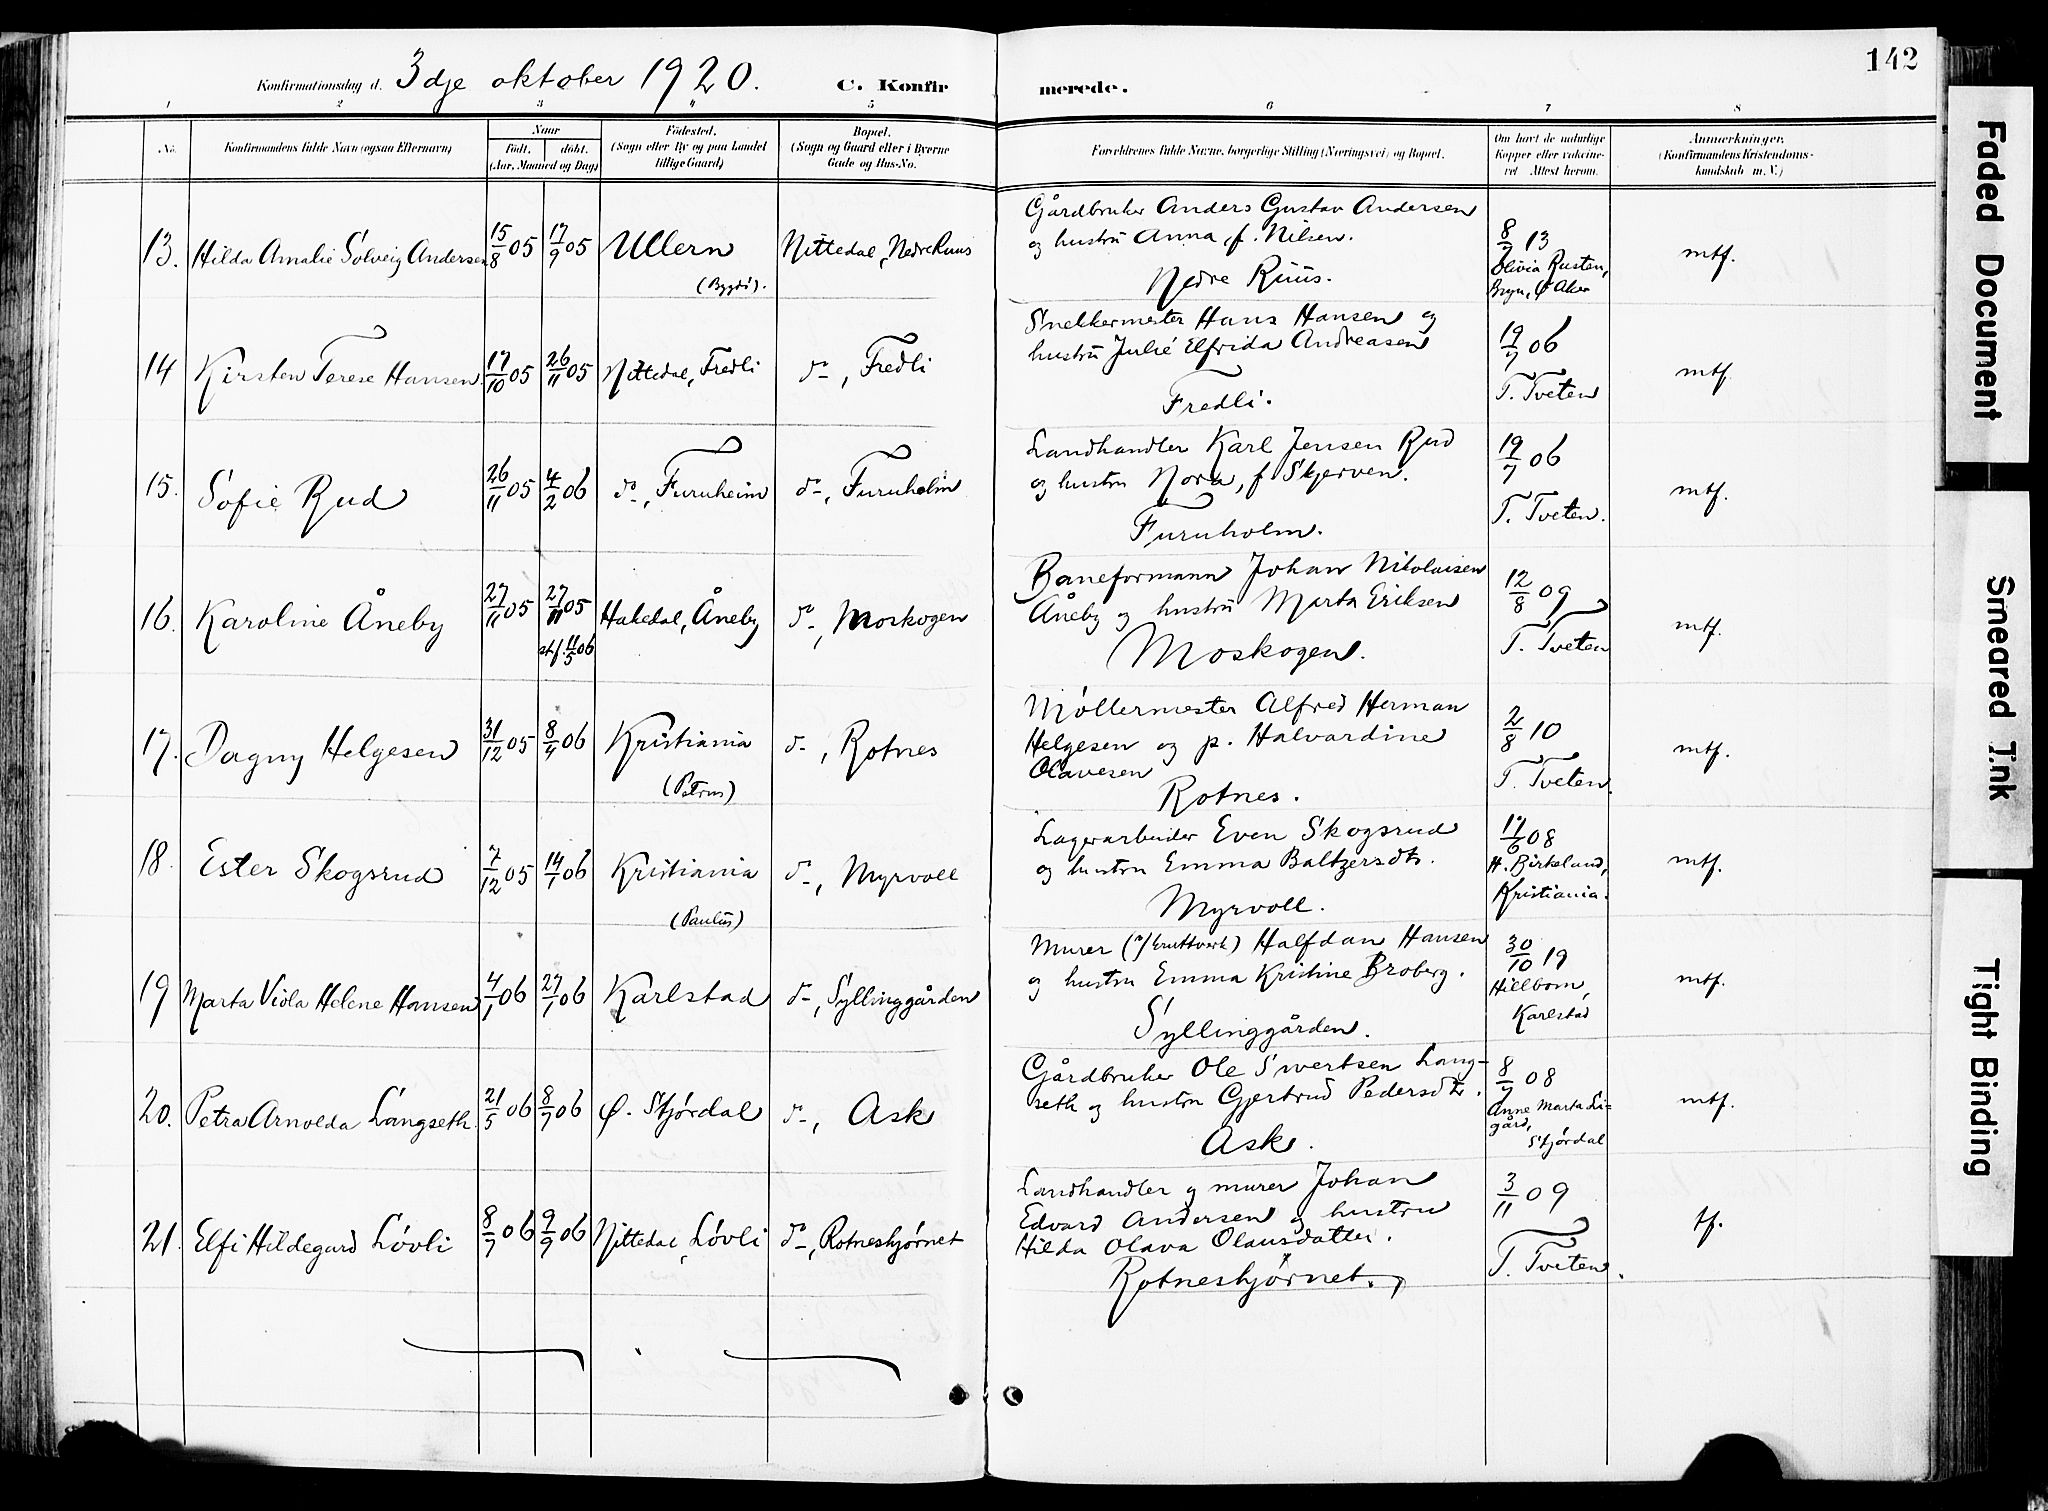 142
Konfirmationsdag d. 3dje oktober 1920. C. Konfirmerede.
1 2 3 4 5 6 7 8
No.
Konfirmandens fulde Navn (ogsaa Efternavn)
Naar
Født. døbt.
(Aar, Maaned og Dag)
Fødested.
(Sogn eller By og paa Landet
tillige Gaard)
Bopæl.
(Sogn og Gaard eller i Byerne
Gade og Hus-No.
Forældrenes fulde Navne, borgerlige Stilling (Næringsvei) og Bopæl.
Om havt de naturlige
Kopper eller vaccine-
ret Attest herom.
Anmerkninger.
(Konfirmandens Kristendoms-
kundskab m. V.)
13. Hilda Amalie Solveig Andersen 15/8 05 17/9 05 Ullern
(Bygdø).
Nittedal, Nedre Ruus
Gårdbruker Anders Gustav Andersen
og hustru Anna, f. Nilsen.
Nedre Ruus.
8/7 13
Olivia Rusten,
Bryn, Ø Aker
mtf.
14 Kirsten Terese Hansen. 17/10 05 26/11 05 Nittedal, Fredli do, Fredli
Snekkermester Hans Hansen og
hustru Julie Elfrida Andreasen
Fredli.
19/7 06
T. Tveten
mtf.
15. Sofie Rud 26/11 05 4/2 06 do, Furuheim do, Furuholm
Landhandler Karl Jensen Rud
og hustru Nora, f Skjerven.
Furuholm.
19/7 06
T. Tveten.
mtf.
16. Karoline Åneby 27/11 05 27/11 05
stf. 11/5 06
Hakedal, Åneby do, Moskogen
Baneformann Johan Nikolaisen
Åneby og hustru Marta Eriksen
Moskogen.
12/8 09
T. Tveten
mtf.
17. Dagny Helgesen 31/12 05 8/4 06 Kristiania
(Petrus)
do, Rotnes
Møllermester Alfred Herman
Helgesen og p. Halvardine
Olavesen
Rotnes.
2/8 10
T. Tveten.
mtf.
18. Ester Skogsrud 7/12 05 14/1 06 Kristiania
(Paulus)
do, Myrvoll
Lagerarbeider Even Skogsrud
og hustru Emma Baltzersdtr.
Myrvoll.
17/6 08
H. Birkeland,
Kristiania.
mtf.
19 Marta Viola Helene Hansen 4/1 06 27/1 06 Karlstad do, Syllinggården
Murer (v/ kruttverk) Halfdan Hansen
og hustru Emma Kristine Broberg.
Syllinggården.
30/10 19
Hillbom,
Karlstad
mtf.
20. Petra Arnolda Langseth. 21/5 06 8/7 06 Ø. Stjørdal do, Ask
Gårdbruker Ole Sivertsen Lang-
seth og hustru Gjertrud Pedersdtr.
Ask.
8/7 08
Anne Marta Li-
gård,
Stjørdal
mtf.
21. Elfi Hildegard Løvli 8/7 06 9/9 06 Nittedal, Løvli do, Rotneshjørnet
Landhandler og murer Johan
Edvard Andersen og hustru
Hilda Olava Olausdatter.
Rotneshjørnet.
3/11 09
T. Tveten.
tf.
Faded Document
Smeared Ink
Tight Binding